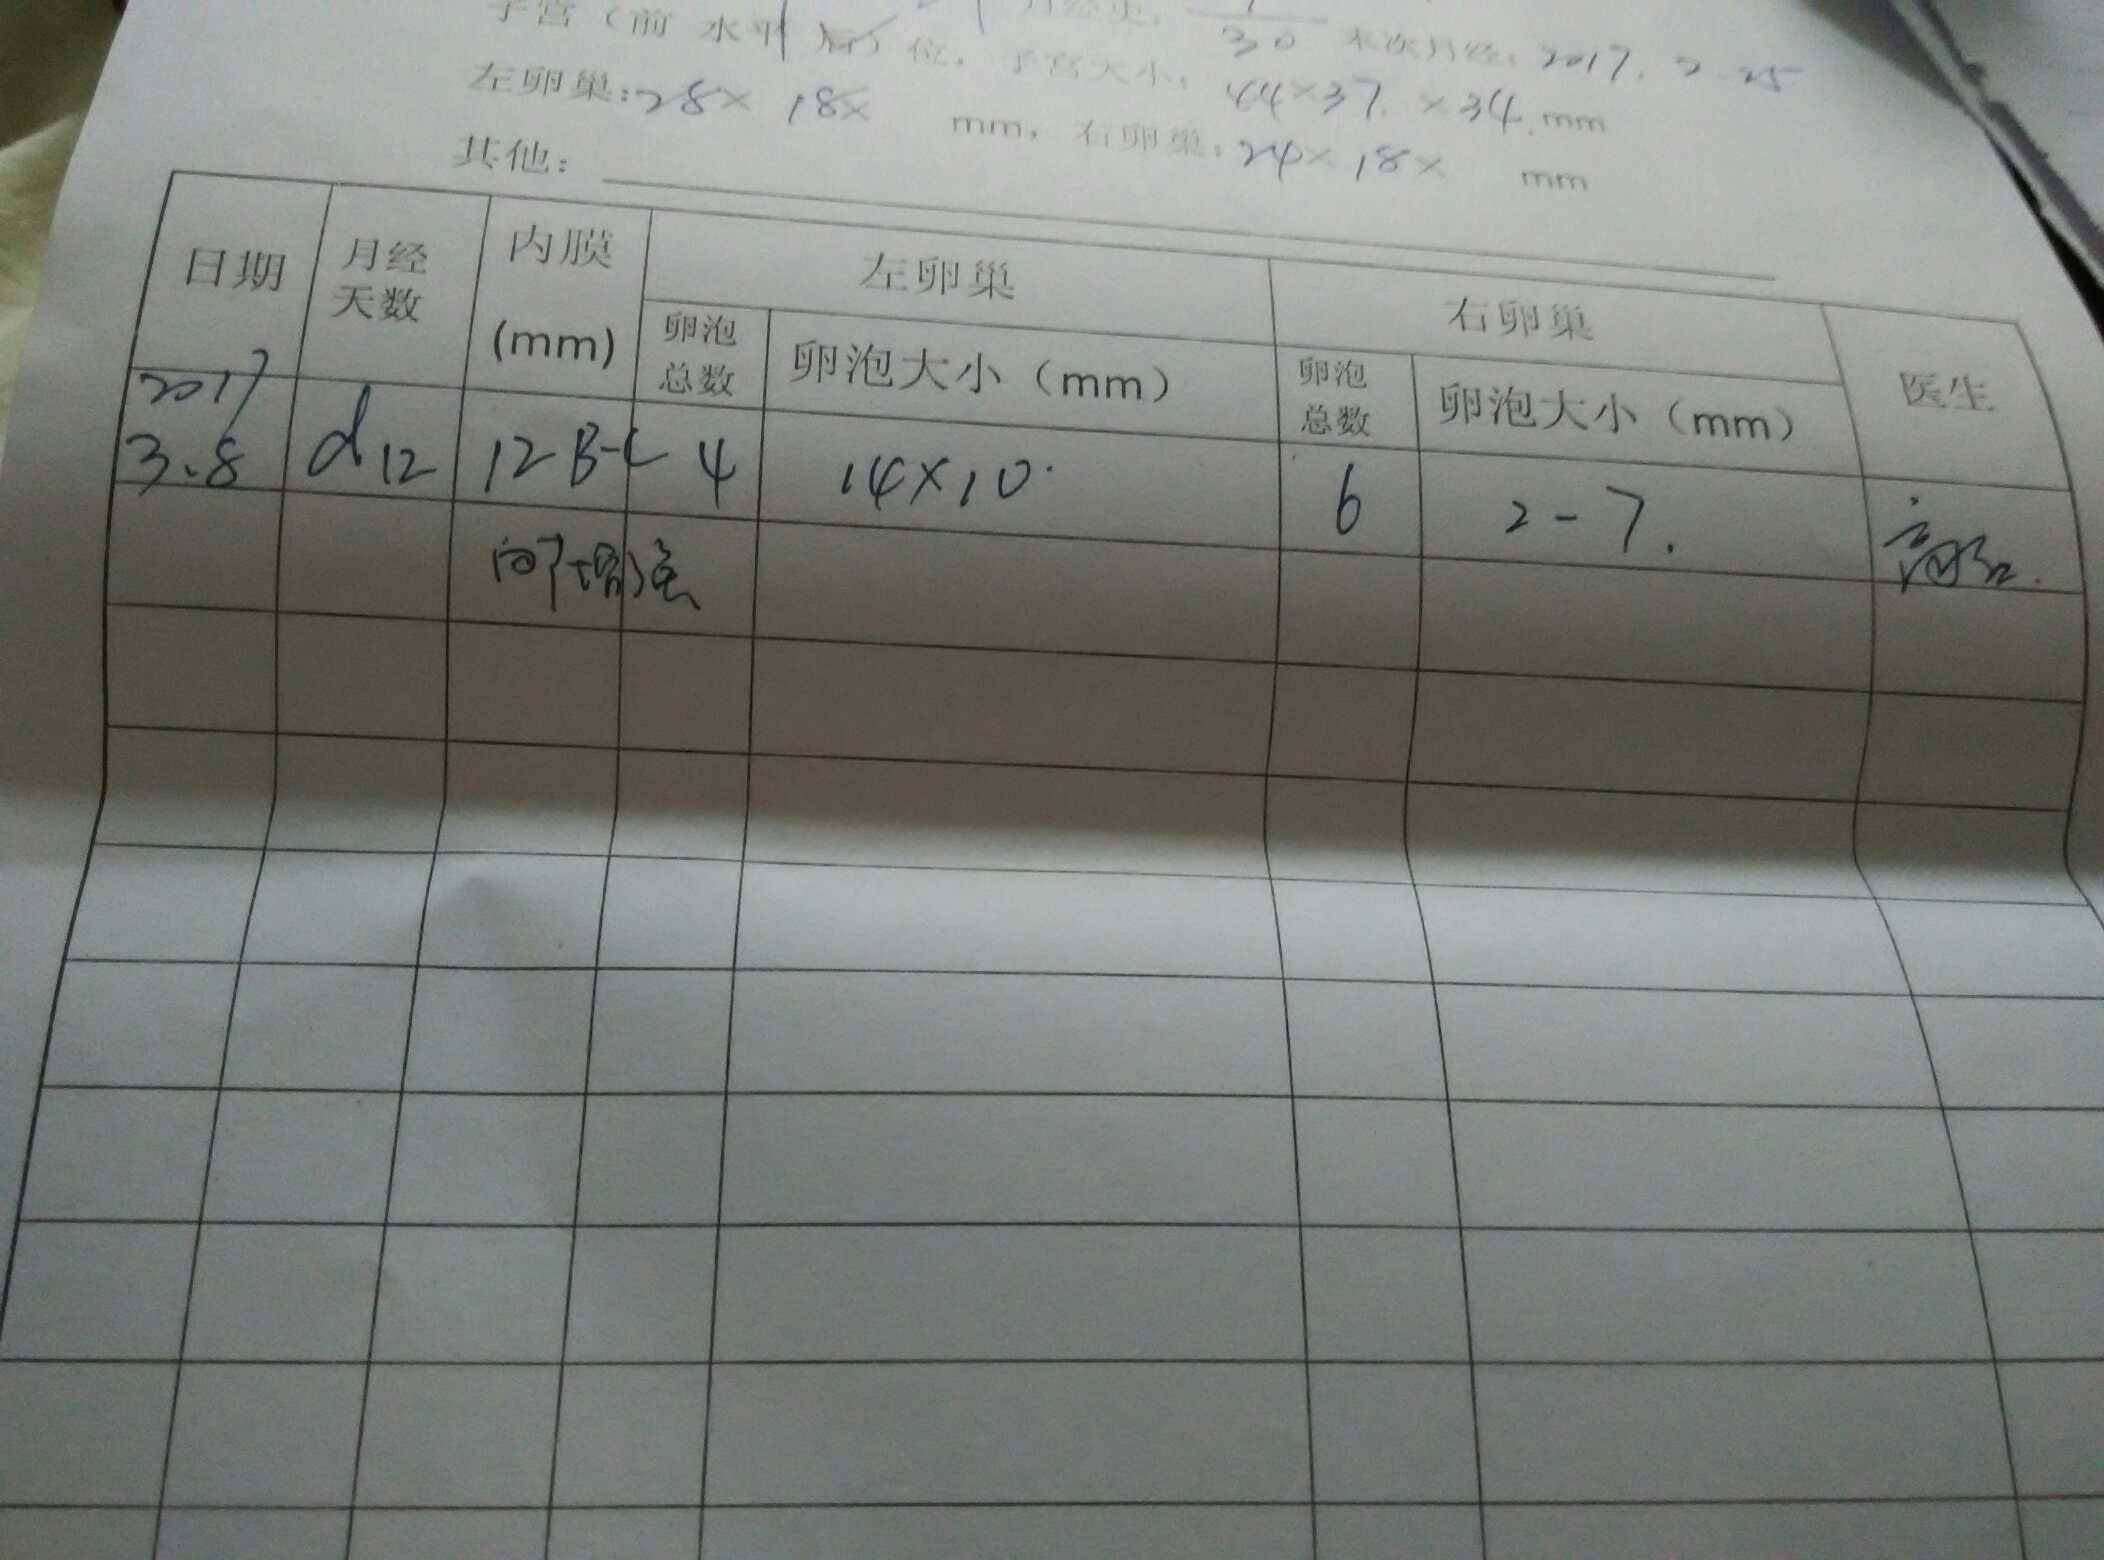 子宫（前 水平 后）位，子宫大小：44×37.×34.mm
月经史：7/30 末次月经：2017.2.25
左卵巢：28×18× mm，右卵巢：24×18× mm
其他：
日期 月经天数 内膜(mm) 左卵巢 右卵巢 医生
卵泡总数 卵泡大小（mm） 卵泡总数 卵泡大小（mm）
2017
3.8 d12 12 B-C 4 14×10. 6 2-7.
内膜增强